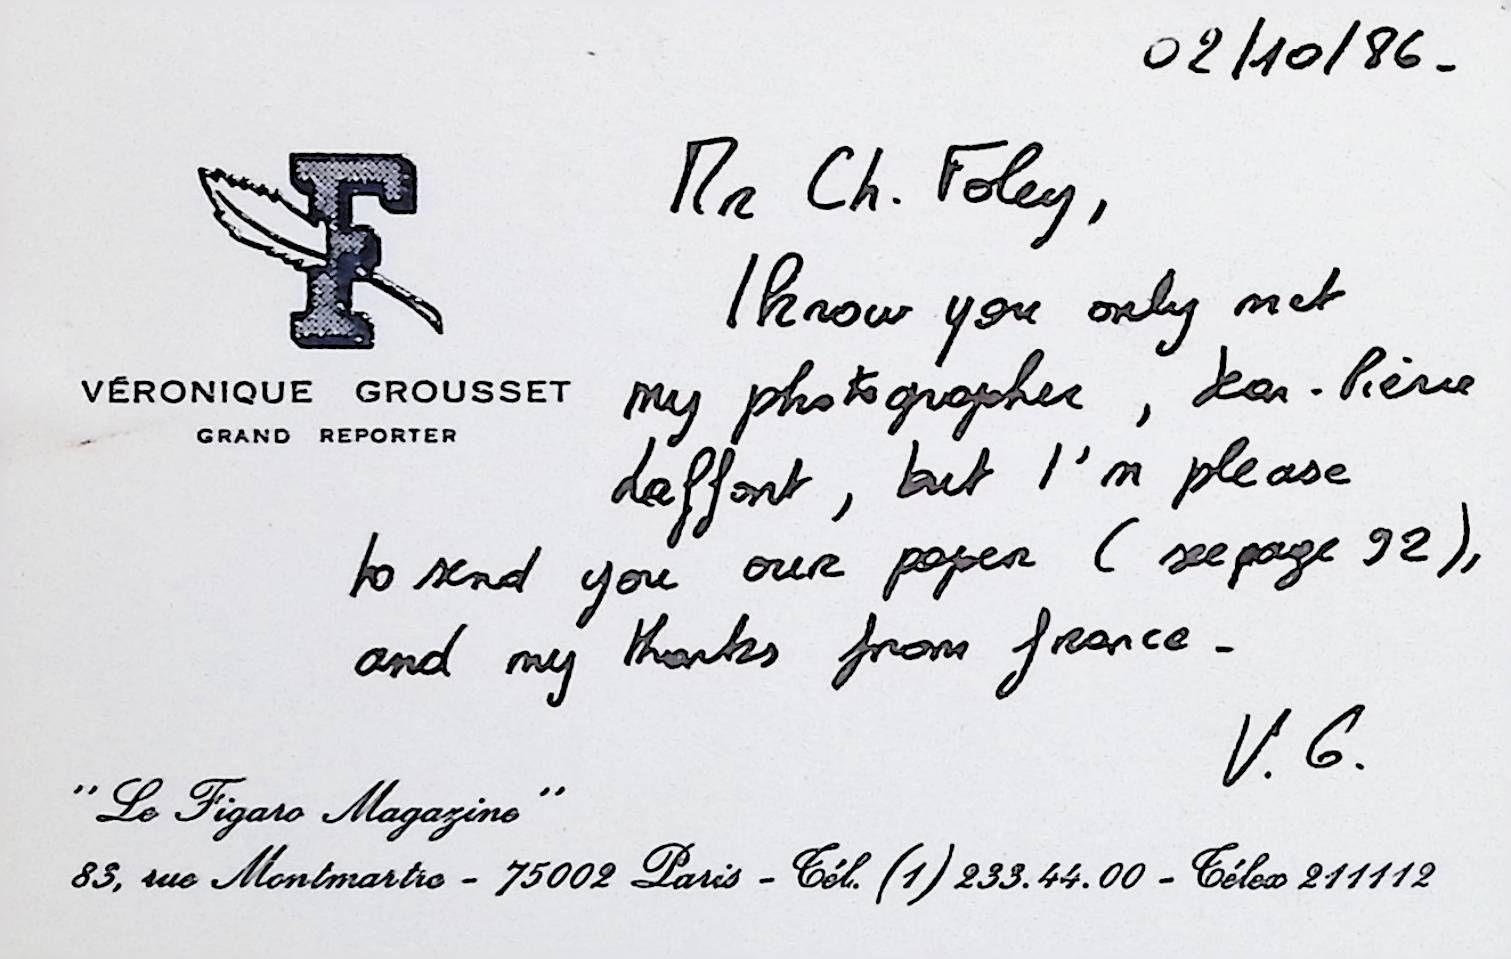 02/10/86-
Mr Ch. Foley,
I know you only met
my photographer, Jean-Pierre
Laffont, but I'm please
to send you our paper (see page 92),
and my thanks from france-
V. G.
F
VÉRONIQUE GROUSSET
GRAND REPORTER
"Le Figaro Magazine"
83, rue Montmartre - 75002 Paris - Tél. (1) 233.44.00 - Télex 211112